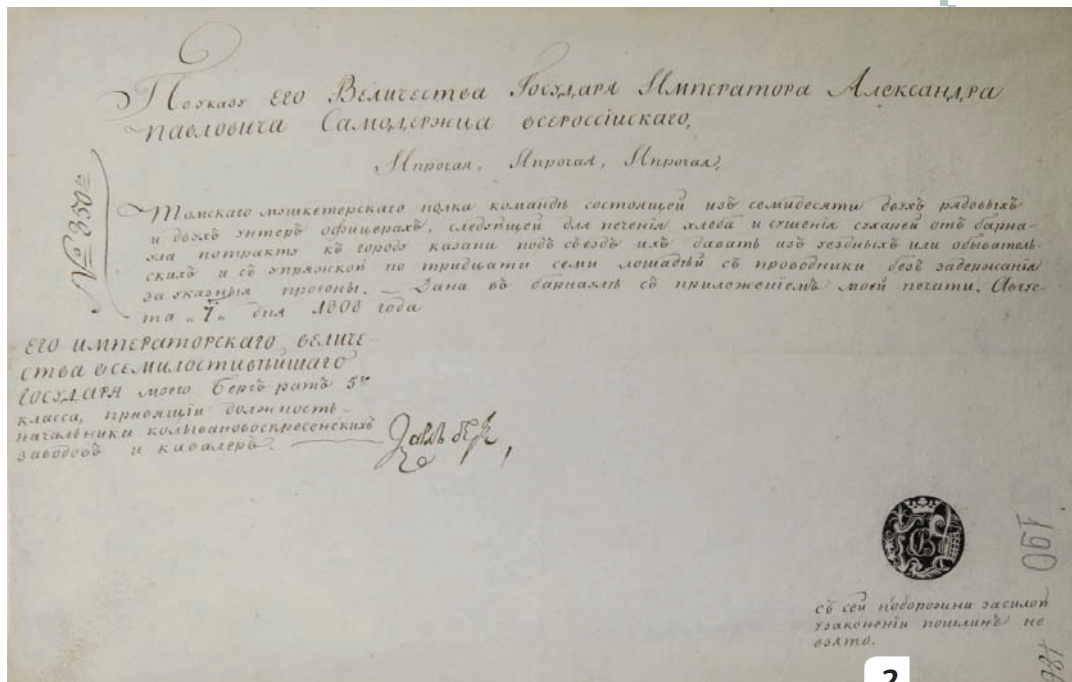 По указу ЕГО ВЕЛИЧЕСТВА ГОСУДАРЯ ИМПЕРАТОРА АЛЕКСАНДРА
ПАВЛОВИЧА САМОДЕРЖЦА ВСЕРОССІЙСКАГО,
Ипрочая, Ипрочая, Ипрочая,
№ 350
Томскаго мушкетерскаго полка командѣ состоящей изъ семидесяти двухъ рядовыхъ
и двухъ унтеръ офицерахъ, следующей для печенія хлеба и сушенія сухарей отъ барна-
ула потракту къ городу казани подъ свездъ илъ давать изъ уездныхъ или обыватель-
скихъ и съ упряжкой по тридцати семи лошадей съ проводники безъ задержанія
за указныя прогоны. Дана въ барнаулѣ съ приложеніемъ моей печати. Авгус-
та „7„ дня 1808 года
ЕГО ИМПЕРАТОРСКАГО ВЕЛИЧЕ-
СТВА ВСЕМИЛОСТИВѢЙШАГО
ГОСУДАРЯ моего Бергъ ратъ 5го
класса, правящій должность
начальника колывановоскресенскихъ
заводовъ и кавалеръ.
съ сей подорожни засилою
узаконеніи пошлинъ не
взято.
190
2